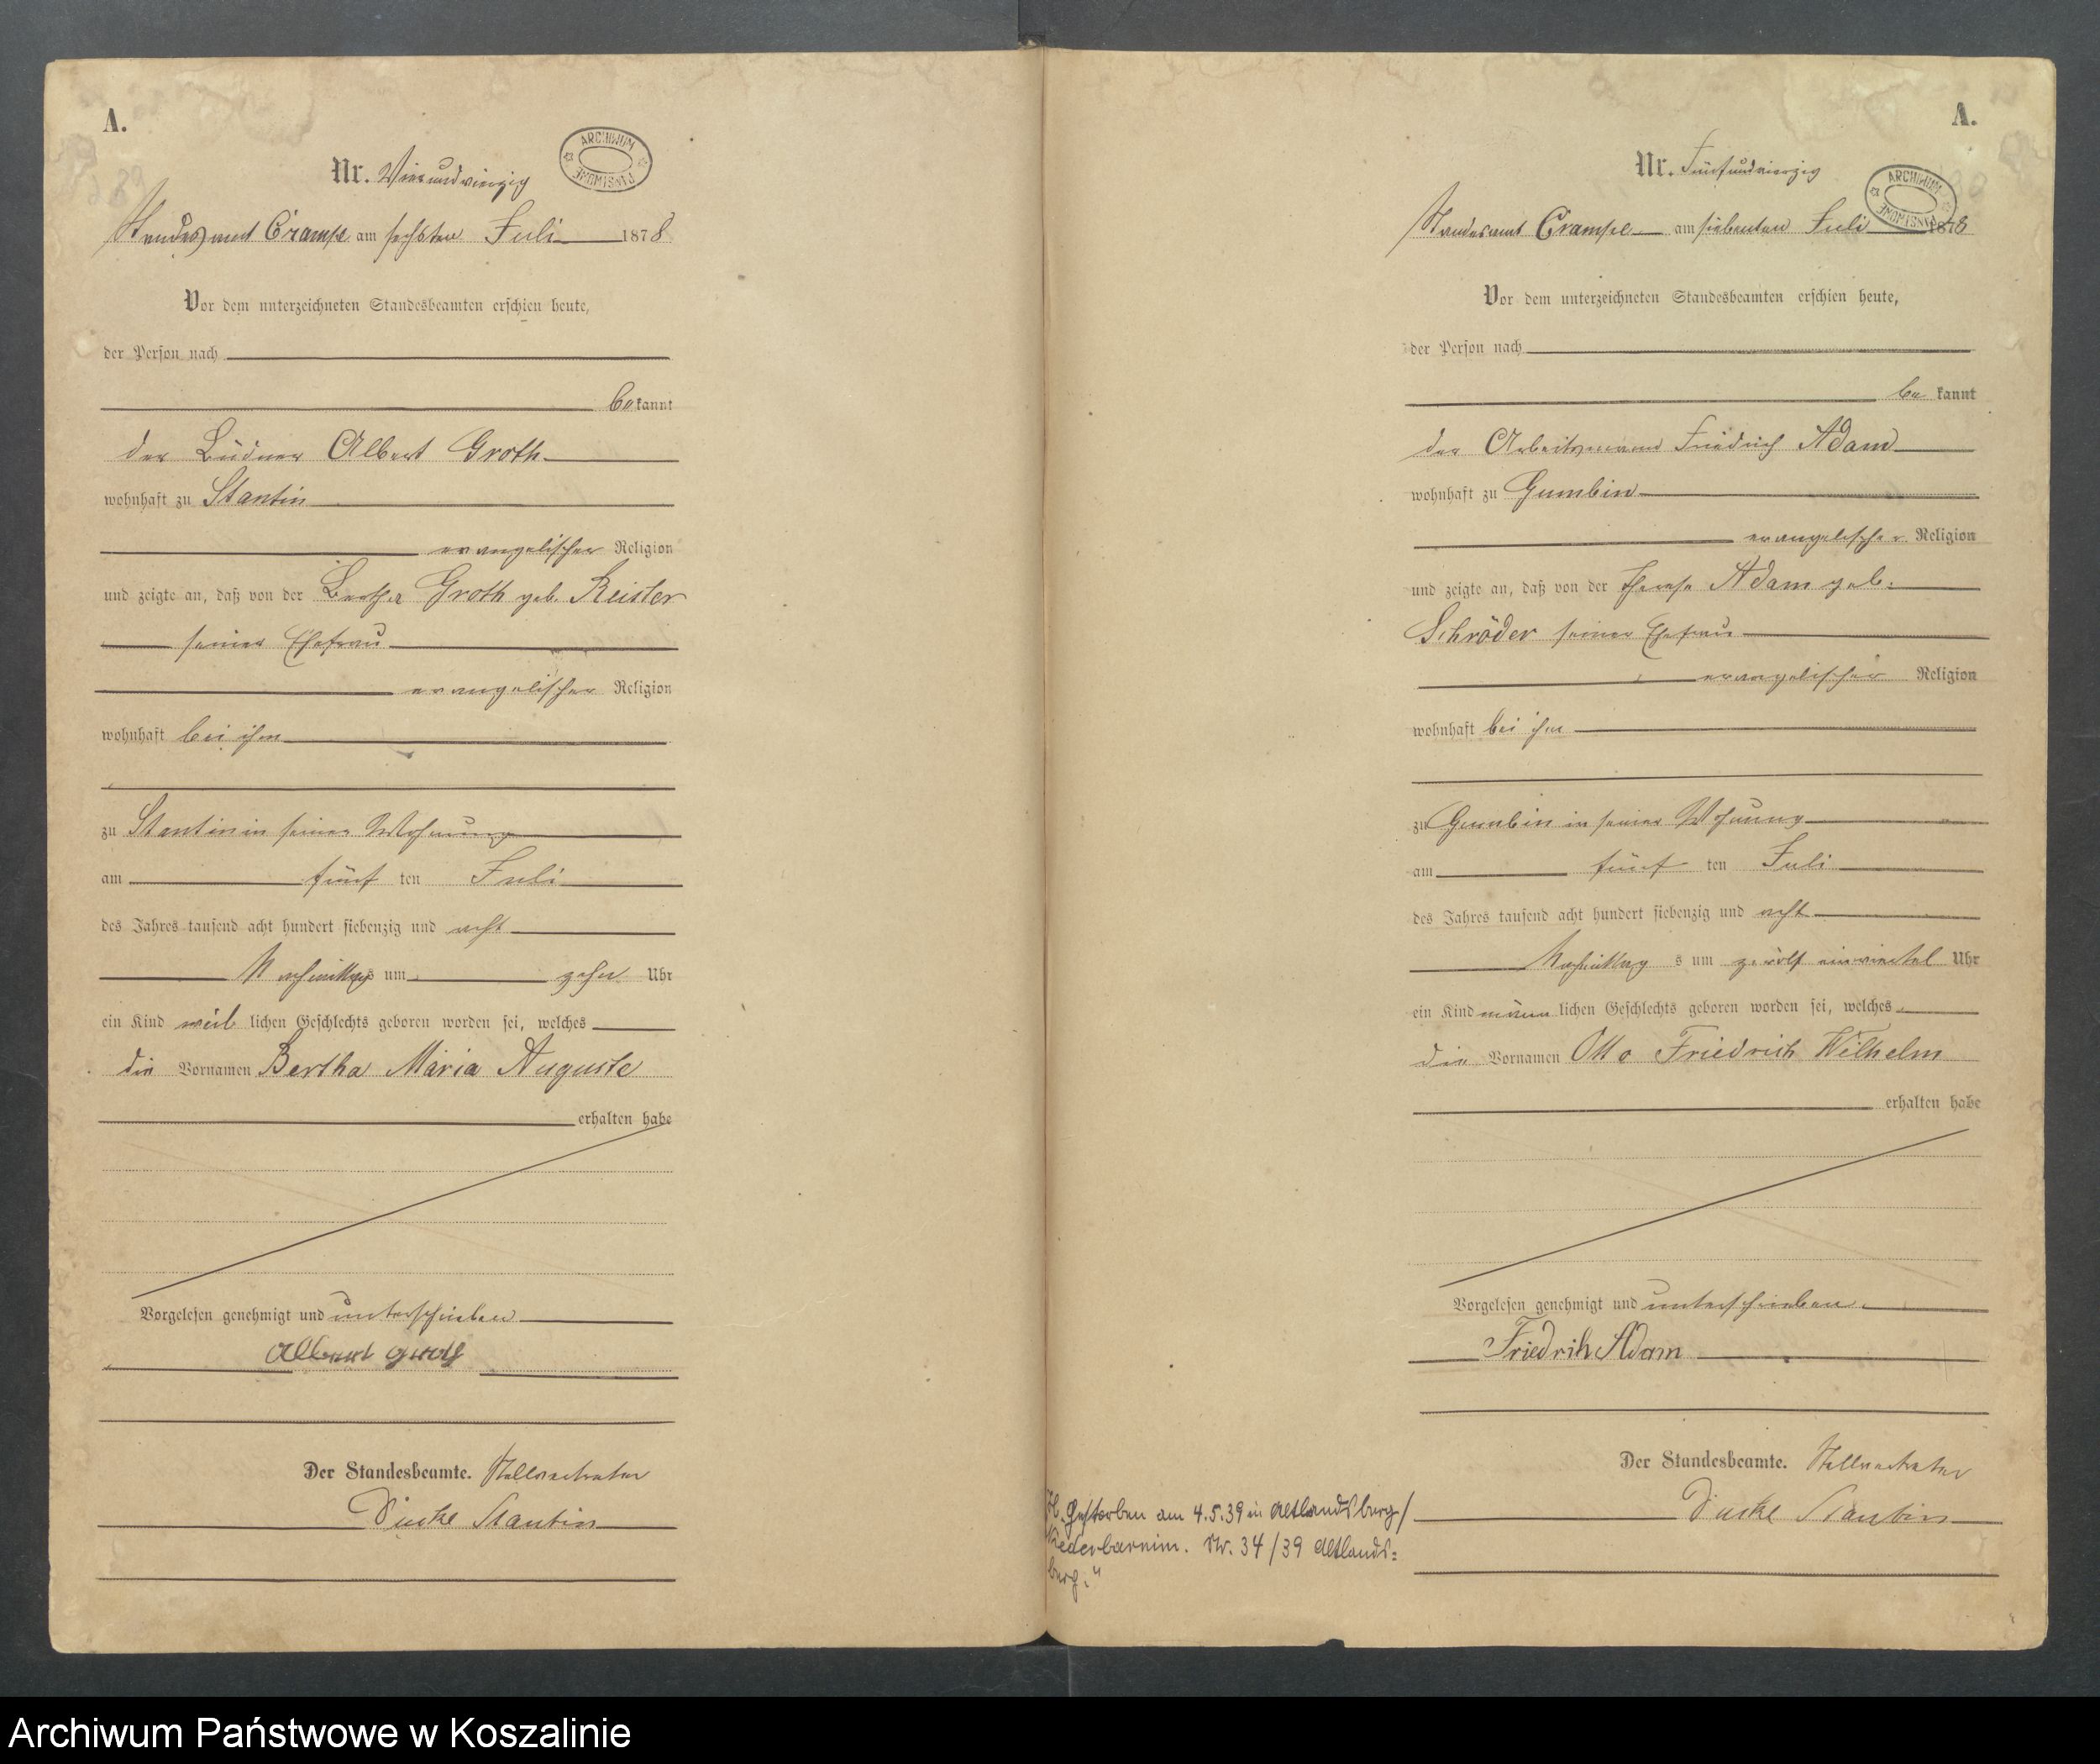 A.
Nr. Vierundvierzig
ARCHIWUM
PAŃSTWOWE
Standesamt Crampe am sechsten Juli 1878
Vor dem unterzeichneten Standesbeamten erschien heute,
der Person nach
bekannt
der Büdner Albert Groth
wohnhaft zu Stantin
evangelischer Religion
und zeigte an, daß von der Bertha Groth geb. Reister
seiner Ehefrau
evangelischer Religion
wohnhaft bei ihm
zu Stantin in seiner Wohnung
am fünf ten Juli
des Jahres tausend acht hundert siebenzig und acht
Nachmittags um zehn Uhr
ein Kind weiblichen Geschlechts geboren worden sei, welches
die Vornamen Bertha Maria Auguste
erhalten habe
Vorgelesen genehmigt und unterschrieben
Albert Groth
Der Standesbeamte. Stellvertreter
Stantin
A.
Nr. Fünfundvierzig
ARCHIWUM
PAŃSTWOWE
Standesamt Crampe am siebenten Juli 1878
Vor dem unterzeichneten Standesbeamten erschien heute,
der Person nach
be kannt
der Arbeitsmann Friedrich Adam
wohnhaft zu Gumbin
evangelischer Religion
und zeigte an, daß von der Therese Adam geb.
Schröder seiner Ehefrau
evangelischer Religion
wohnhaft bei ihm
zu Gumbin in seiner Wohnung
am fünf ten Juli
des Jahres tausend acht hundert siebenzig und acht
Nachmittag s um zwölf einviertel Uhr
ein Kind männlichen Geschlechts geboren worden sei, welches
die Vornamen Otto Friedrich Wilhelm
erhalten habe
Vorgelesen genehmigt und unterschrieben
Friedrich Adam
Der Standesbeamte. Stellvertreter
Stantin
Gestorben am 4.5.39 in Altlandsberg/
Niederbarnim. Nr. 34/39 Altlands=
berg."
Archiwum Państwowe w Koszalinie